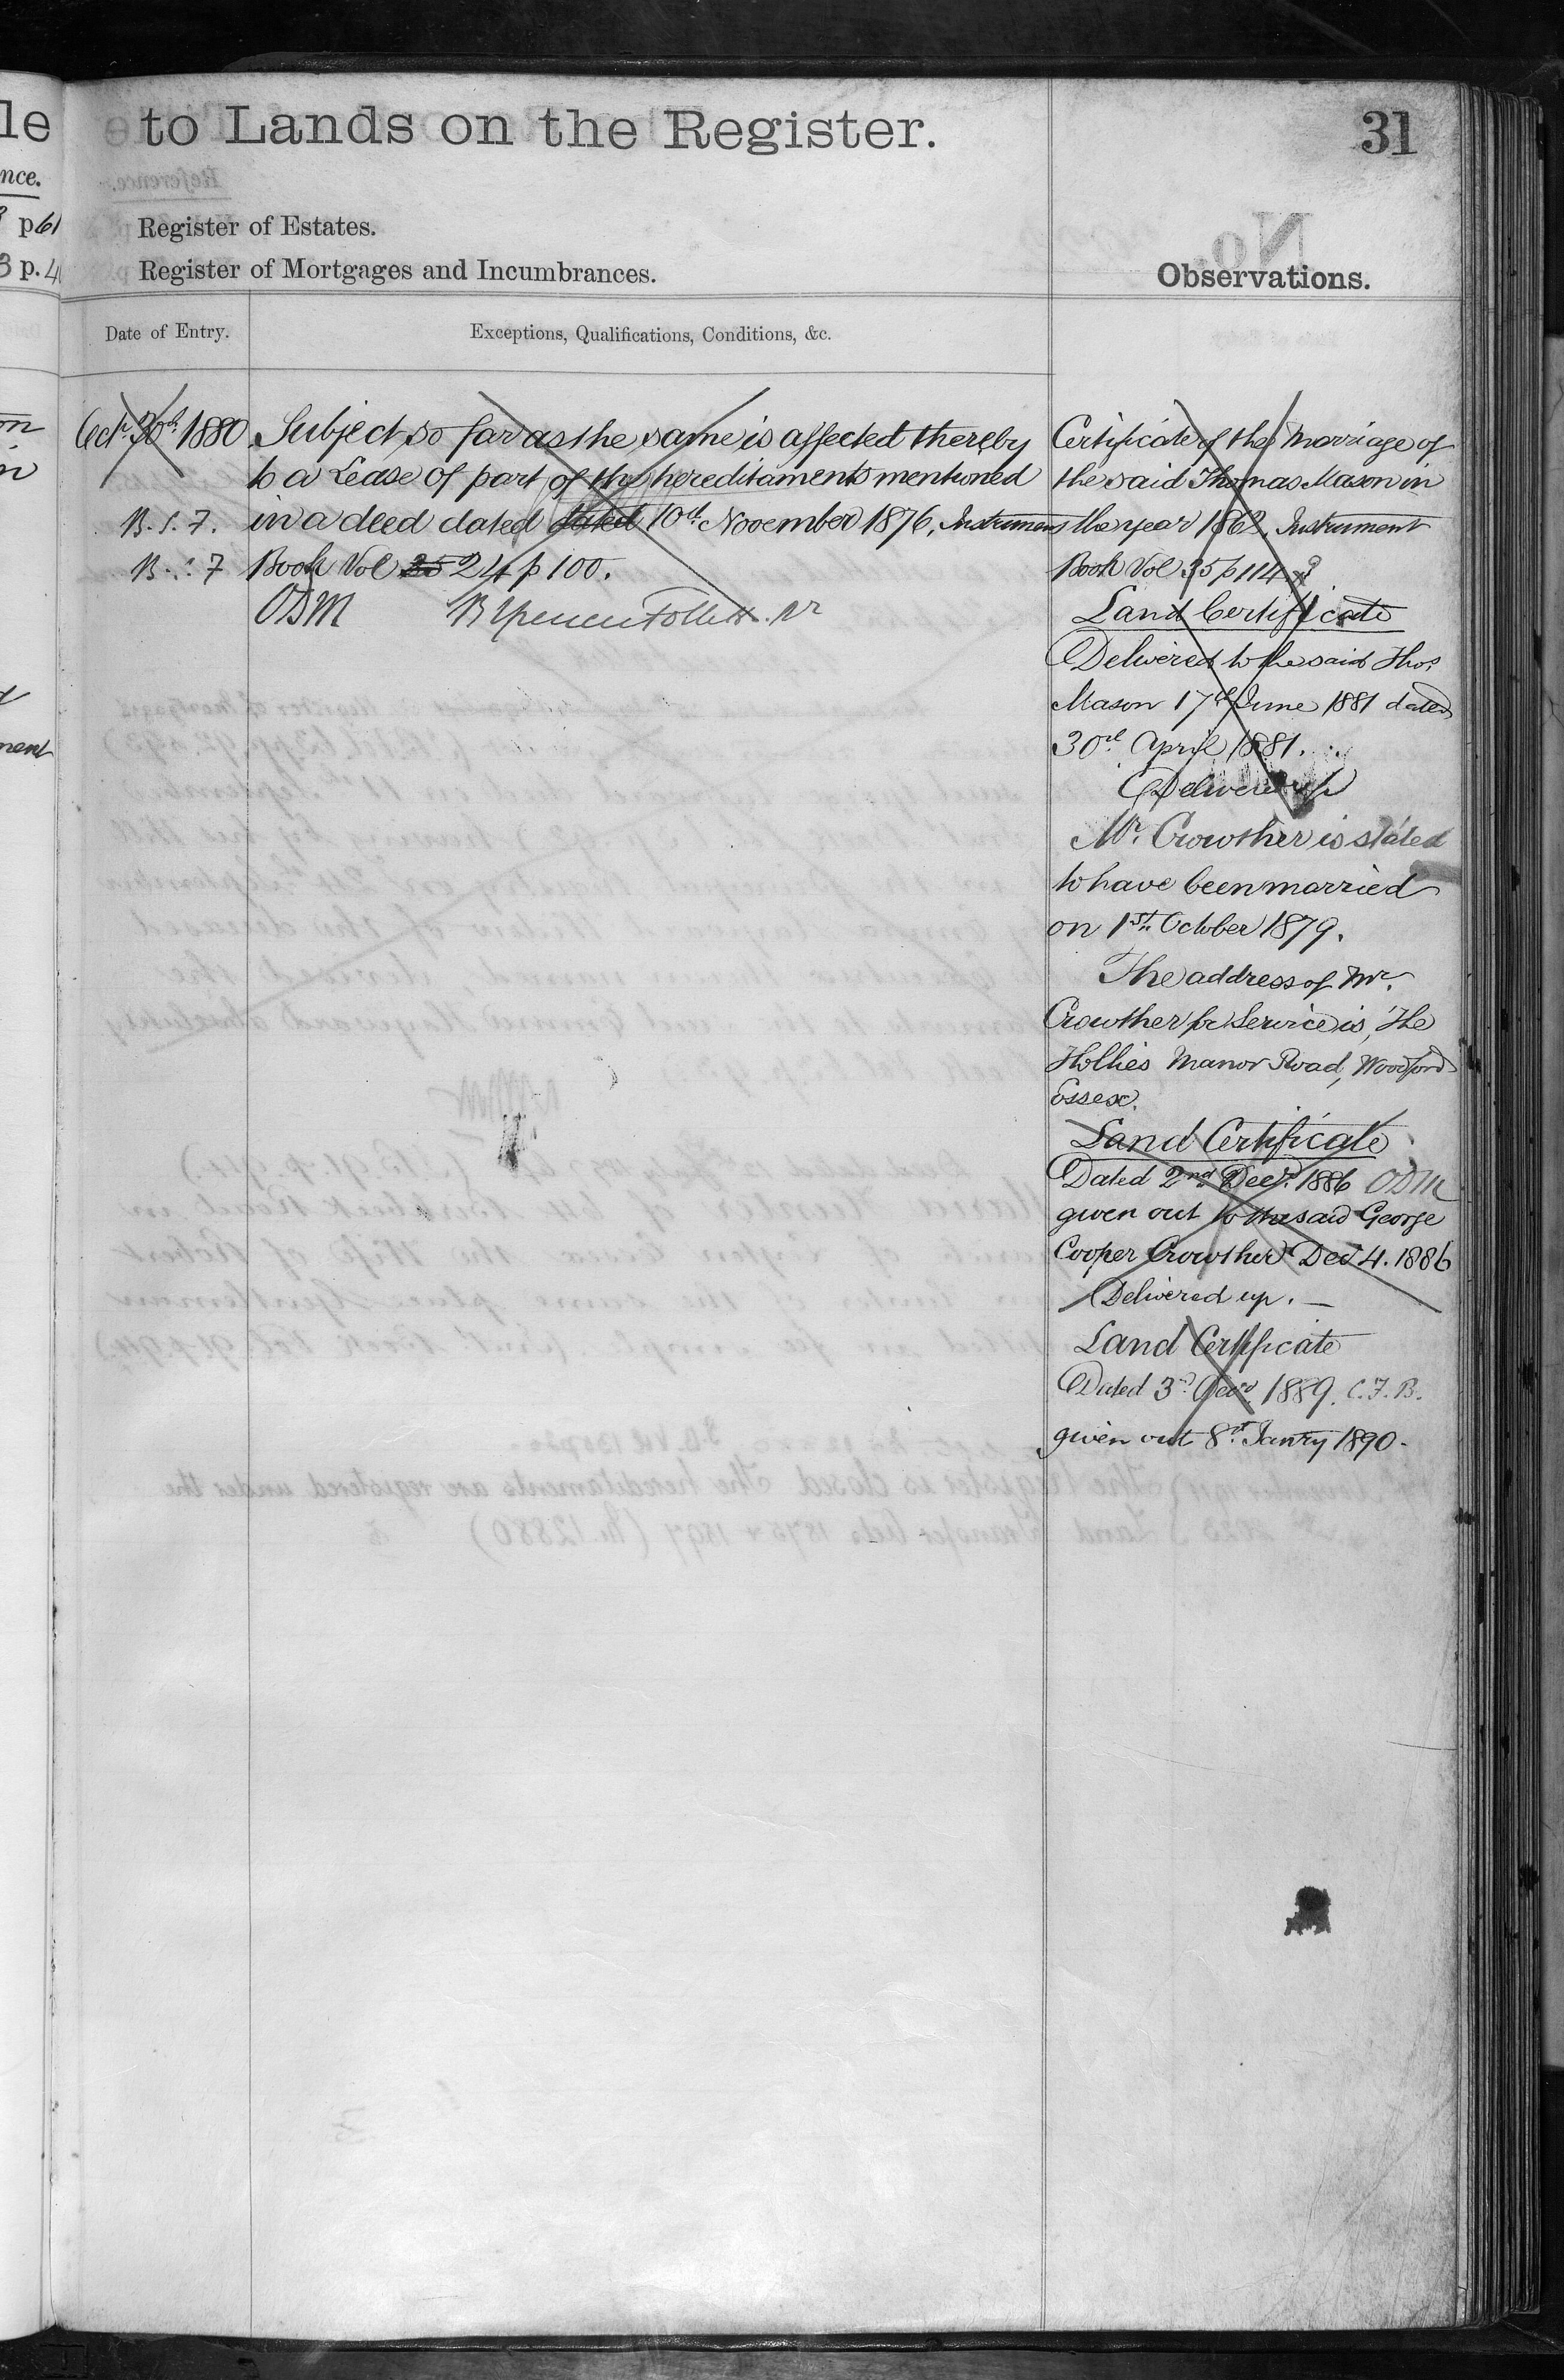 le
to Lands on the Register.
31
nce.
p 61
Register of Estates.
3 p. 4
Register of Mortgages and Incumbrances.
Observations.
Date of Entry.
Exceptions, Qualifications, Conditions, &c.
Octr. 30th 1880
Subject so far as the same is affected thereby
to a Lease of part of the hereditaments mentioned
in a deed dated dated 10th November 1876, Instrument
Book Vol 35 24 p 100.
B.S.F.
ODM
Certificate of the Marriage of
the said Thomas Mason in
the year 1862, Instrument
Book Vol 35 p 114
Land Certificate
Delivered to the said Thos.
Mason 17th June 1881 dated
30th April 1881.
Delivered up
Mr. Crowther is stated
to have been married
on 1st. October 1879.
The address of Mr.
Crowther for Service is, The
Hollies Manor Road, Woodford
Essex.
Land Certificate
Dated 2nd Decr. 1886 ODM
given out to the said George
Cooper Crowther Decr 4. 1886
Delivered up. —
Land Certificate
Dated 3rd Decr. 1889. C.F.B.
given out 8th Janry 1890.